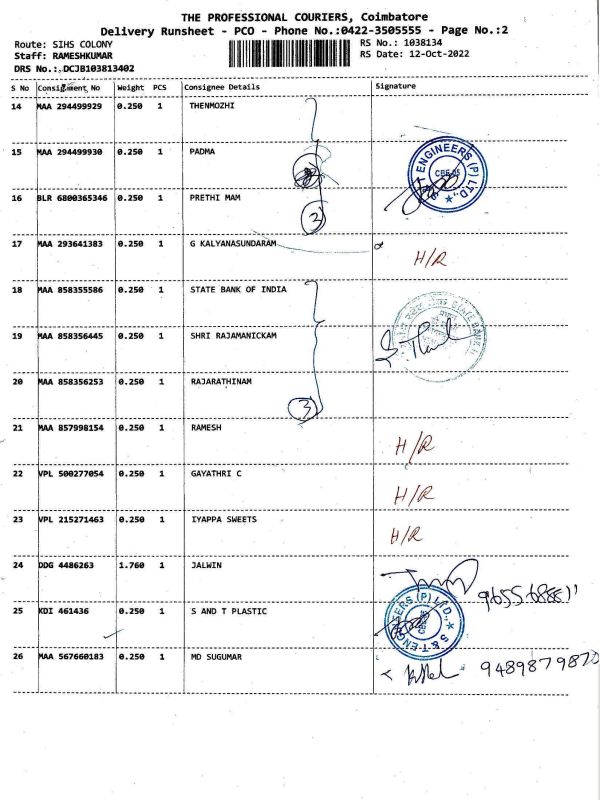 THE PROFESSIONAL COURIERS, Coimbatore
Delivery Runsheet - PCO - Phone No.:0422-3505555 - Page No.:2
Route: SIHS COLONY
RS No.: 1038134
Staff: RAMESHKUMAR
RS Date: 12-Oct-2022
DRS No.: DCJB103813402
S No Consignment No Weight PCS Consignee Details Signature
14 MAA 294499929 0.250 1 THENMOZHI
15 MAA 294499930 0.250 1 PADMA
ENGINEERS (P) LTD.,
16 BLR 6800365346 0.250 1 PRETHI MAM
3
17 MAA 293641383 0.250 1 G KALYANASUNDARAM
H/R
18 MAA 858355586 0.250 1 STATE BANK OF INDIA
STATE BANK
19 MAA 858356445 0.250 1 SHRI RAJAMANICKAM
20 MAA 858356253 0.250 1 RAJARATHINAM
3
21 MAA 857998154 0.250 1 RAMESH
H/R
22 VPL 500277054 0.250 1 GAYATHRI C
H/R
23 VPL 215271463 0.250 1 IYAPPA SWEETS
H/R
24 DDG 4486263 1.760 1 JALWIN
25 KDI 461436 0.250 1 S AND T PLASTIC
26 MAA 567660183 0.250 1 MD SUGUMAR
9489879870